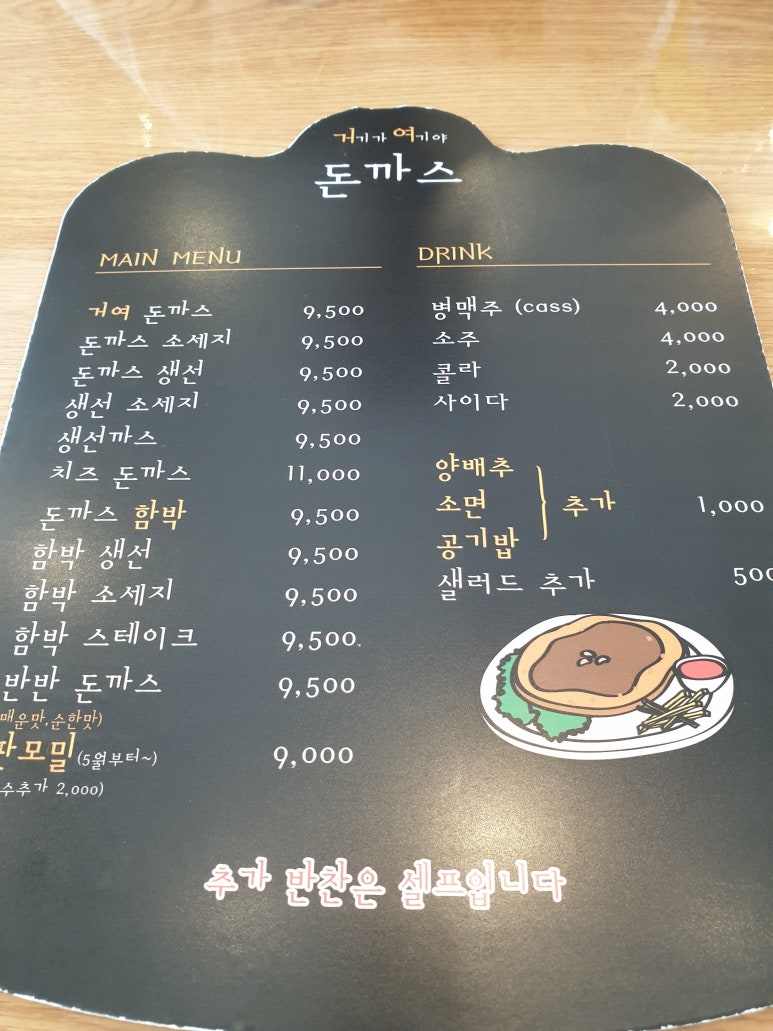 거기가 여기야
돈까스
MAIN MENU
거여 돈까스 9,500
돈까스 소세지 9,500
돈까스 생선 9,500
생선 소세지 9,500
생선까스 9,500
치즈 돈까스 11,000
돈까스 함박 9,500
함박 생선 9,500
함박 소세지 9,500
함박 스테이크 9,500
반반 돈까스 9,500
매운맛,순한맛)
판모밀 (5월부터~) 9,000
수추가 2,000)
DRINK
병맥주 (cass) 4,000
소주 4,000
콜라 2,000
사이다 2,000
양배추
소면 추가 1,000
공기밥
샐러드 추가
추가 반찬은 셀프입니다